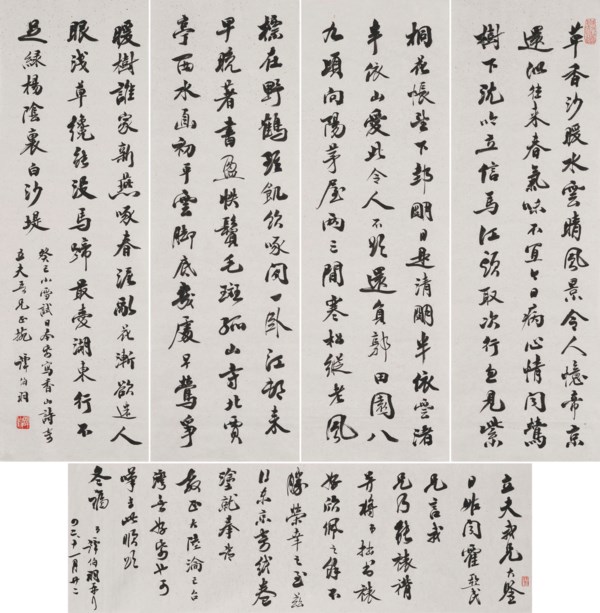 草香沙暖水雲晴風景令人憶帝京
還似往來春氣味不宜今日病心情聞鶯
樹下沈吟立信馬江頭取次行忽見紫
桐花悵望下邽明日是清明半依雲渚
半依山愛此令人不欲還負郭田園八
九頃向陽茅屋兩三間寒松縱老風
標在野鶴雖飢飲啄閒一臥江村來
早晚著書盈帙鬢毛斑孤山寺北賈
亭西水面初平雲腳底幾處早鶯爭
暖樹誰家新燕啄春泥亂花漸欲迷人
眼淺草纔能沒馬蹄最愛湖東行不
足綠楊陰裏白沙堤
癸巳小雪試日本紙寫香山詩奉
立夫吾兄正 譚伯羽
立夫我兄大鑒
日昨
兄言我
兄乃能裱褙
拙書裱
好欽佩之餘不
勝榮幸之至茲
以東京寄紙卷
塗就奉
教正大陸淪亡台
灣無好紙也可
嘆專此順頌
冬福 弟譚伯羽
四二十一月廿二